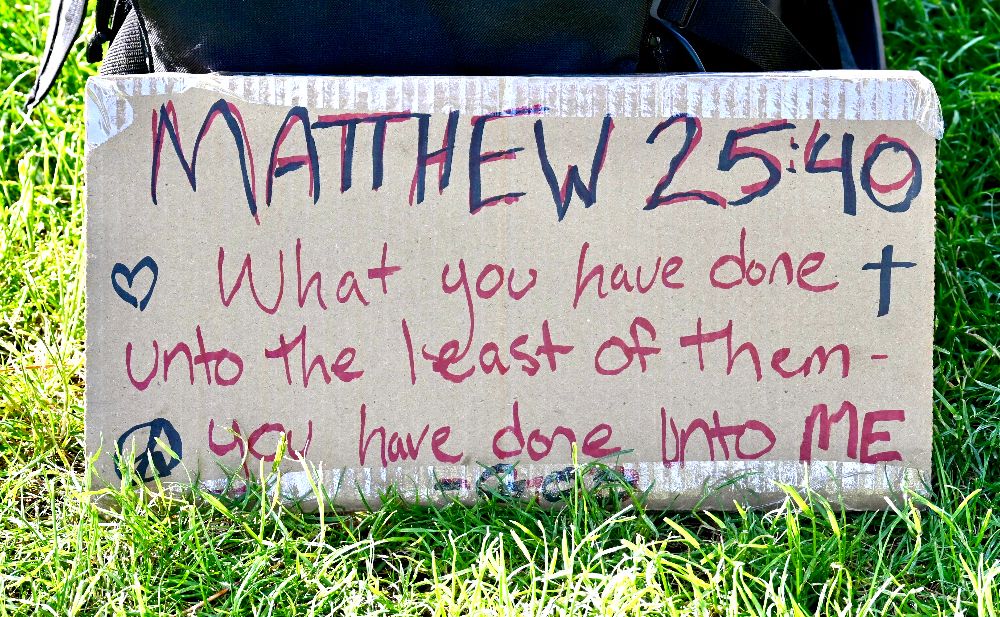 MATTHEW 25:40
What you have done
unto the least of them-
you have done Unto ME